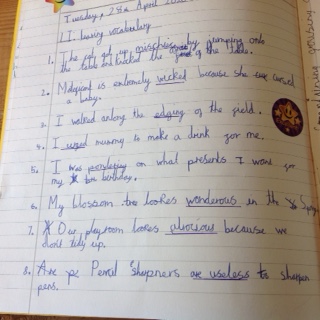 Tuesday, 28th April
LI. Using vocabulary
1. The cat got up mischief by jumping onto
the table and knocked the of the table.
2. Malgient is extremely wicked because she cursed
a baby.
3. I walked onlong the edging of the field.
4. I urged mummy to make a drink for me.
5. I was pondering on what presents I want for
my birthday.
6. My blossom tree lookes wonderous in the
7. Our playroom lookes atrocious because we
don't tidy up.
8. Are Pencil Sharpners are useless to sharpen
pens.